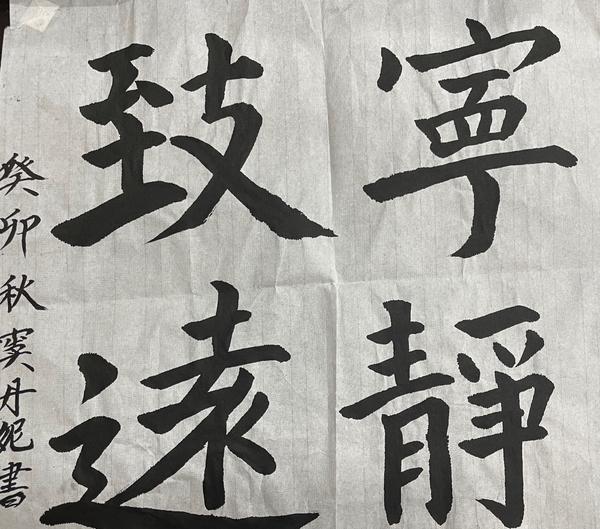 寧靜
致遠
癸卯秋窦丹妮書